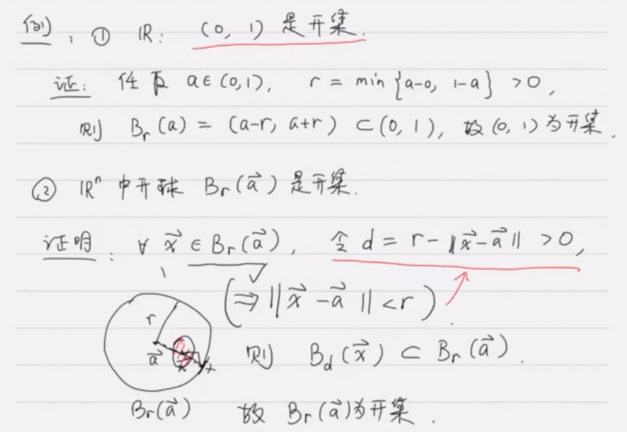 例: ① ℝ: (0, 1) 是开集.
证: 任取 a∈(0,1), r = min {a-0, 1-a} >0,
则 Br(a) = (a-r, a+r) ⊂ (0, 1), 故 (0, 1) 为开集.
② ℝⁿ 中开球 Br(a⃗) 是开集.
证明: ∀ x⃗ ∈ Br(a⃗), 令 d = r - ‖x⃗-a⃗‖ >0,
(⇒ ‖x⃗ - a⃗‖ < r).
r
a⃗
则 Bd(x⃗) ⊂ Br(a⃗).
Br(a⃗)
故 Br(a⃗) 为开集.